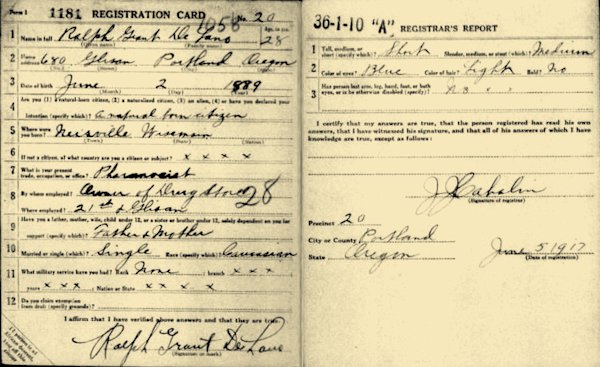 Form 1 1181 REGISTRATION CARD No. 20
1 Name in full Ralph Grant De Lano Age, in yrs. 28
(Given name) (Family name)
2 Home address 680 Glisan Portland Oregon
(No.) (Street) (City) (State)
3 Date of birth June 2 1889
(Month) (Day) (Year)
4 Are you (1) a natural-born citizen, (2) a naturalized citizen, (3) an alien, (4) or have you declared your
intention (specify which)? A natural born citizen
5 Where were you born? Neillsville Wisconsin
(Town) (State) (Nation)
6 If not a citizen, of what country are you a citizen or subject? x x x x
7 What is your present trade, occupation, or office? Pharmacist
8 By whom employed? Owner of Drug Store 28
Where employed? 21st & Glisan
9 Have you a father, mother, wife, child under 12, or a sister or brother under 12, solely dependent on you for
support (specify which)? Father & Mother
10 Married or single (which)? Single Race (specify which)? Caucasian
11 What military service have you had? Rank None ; branch x x x
years x x x ; Nation or State x x x x
12 Do you claim exemption from draft (specify grounds)?
I affirm that I have verified above answers and that they are true.
Ralph Grant De Lano
(Signature or mark)
36-1-10 "A" REGISTRAR'S REPORT
1 Tall, medium, or short (specify which)? Short Slender, medium, or stout (which)? Medium
2 Color of eyes? Blue Color of hair? Light Bald? No
3 Has person lost arm, leg, hand, foot, or both eyes, or is he otherwise disabled (specify)?
I certify that my answers are true, that the person registered has read his own
answers, that I have witnessed his signature, and that all of his answers of which I have
knowledge are true, except as follows:
(Signature of registrar)
Precinct 20
City or County Portland
State Oregon June 5 1917
(Date of registration)